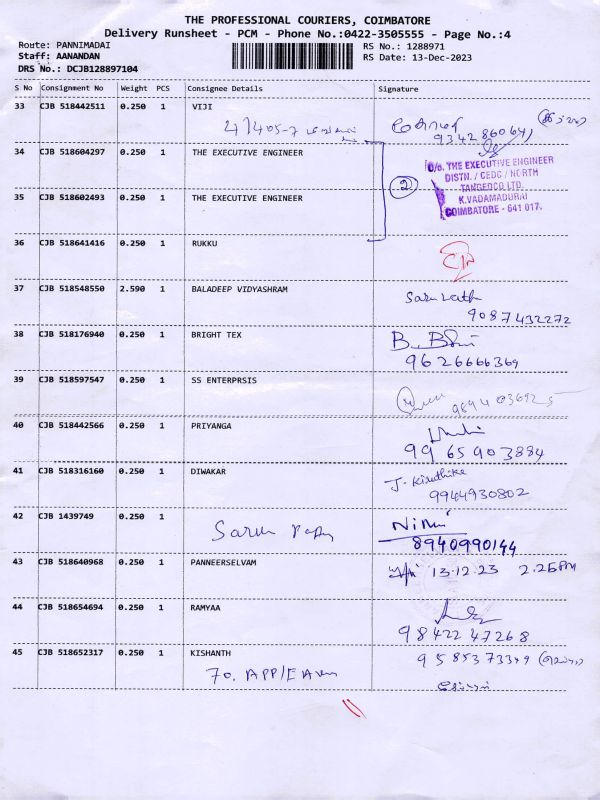 THE PROFESSIONAL COURIERS, COIMBATORE
Delivery Runsheet - PCM - Phone No.:0422-3505555 - Page No.:4
Route: PANNIMADAI
RS No.: 1288971
Staff: AANANDAN
RS Date: 13-Dec-2023
DRS No.: DCJB128897104
S No Consignment No Weight PCS Consignee Details Signature
33 CJB 518442511 0.250 1 VIJI
34 CJB 518604297 0.250 1 THE EXECUTIVE ENGINEER
2
O/o. THE EXECUTIVE ENGINEER
DISTN. / CEDC / NORTH
TANGEDCO LTD.
K.VADAMADURAI
COIMBATORE - 641 017.
35 CJB 518602493 0.250 1 THE EXECUTIVE ENGINEER
36 CJB 518641416 0.250 1 RUKKU
37 CJB 518548550 2.590 1 BALADEEP VIDYASHRAM
9087432272
38 CJB 518176940 0.250 1 BRIGHT TEX
9626666369
39 CJB 518597547 0.250 1 SS ENTERPRSIS
40 CJB 518442566 0.250 1 PRIYANGA
9965903884
41 CJB 518316160 0.250 1 DIWAKAR
J. Kiruthika
9944930802
42 CJB 1439749 0.250 1
8940990144
43 CJB 518640968 0.250 1 PANNEERSELVAM
13.12.23 2.25PM
44 CJB 518654694 0.250 1 RAMYAA
9842247268
45 CJB 518652317 0.250 1 KISHANTH
9585373349
70.